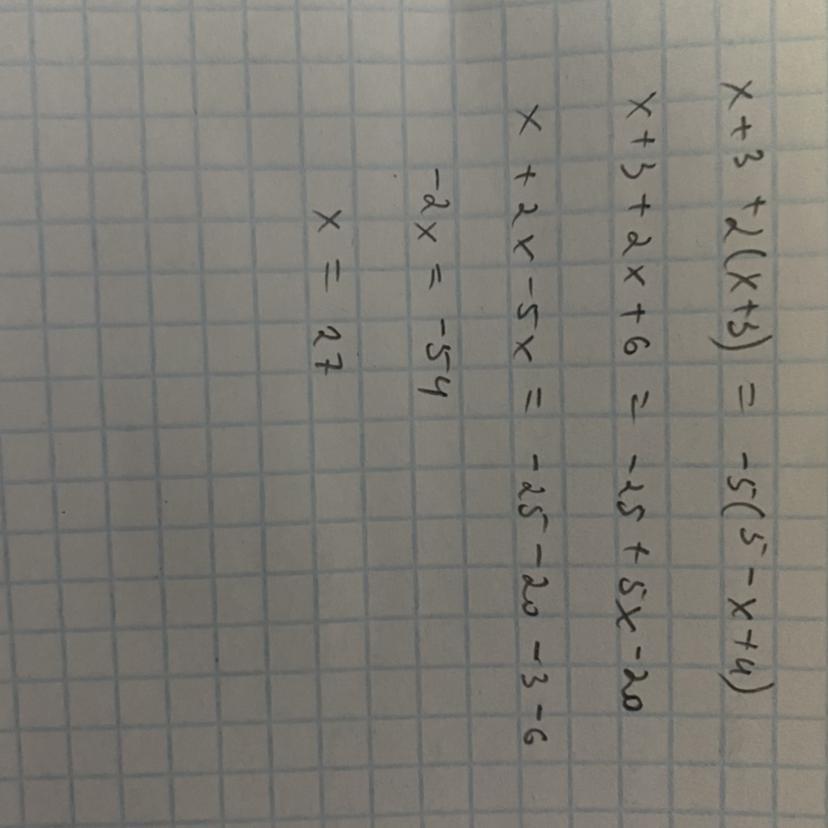 x + 3 + 2(x+3) = -5(5 - x + 4)
x + 3 + 2x + 6 = -25 + 5x - 20
x + 2x - 5x = -25 - 20 - 3 - 6
-2x = -54
x = 27